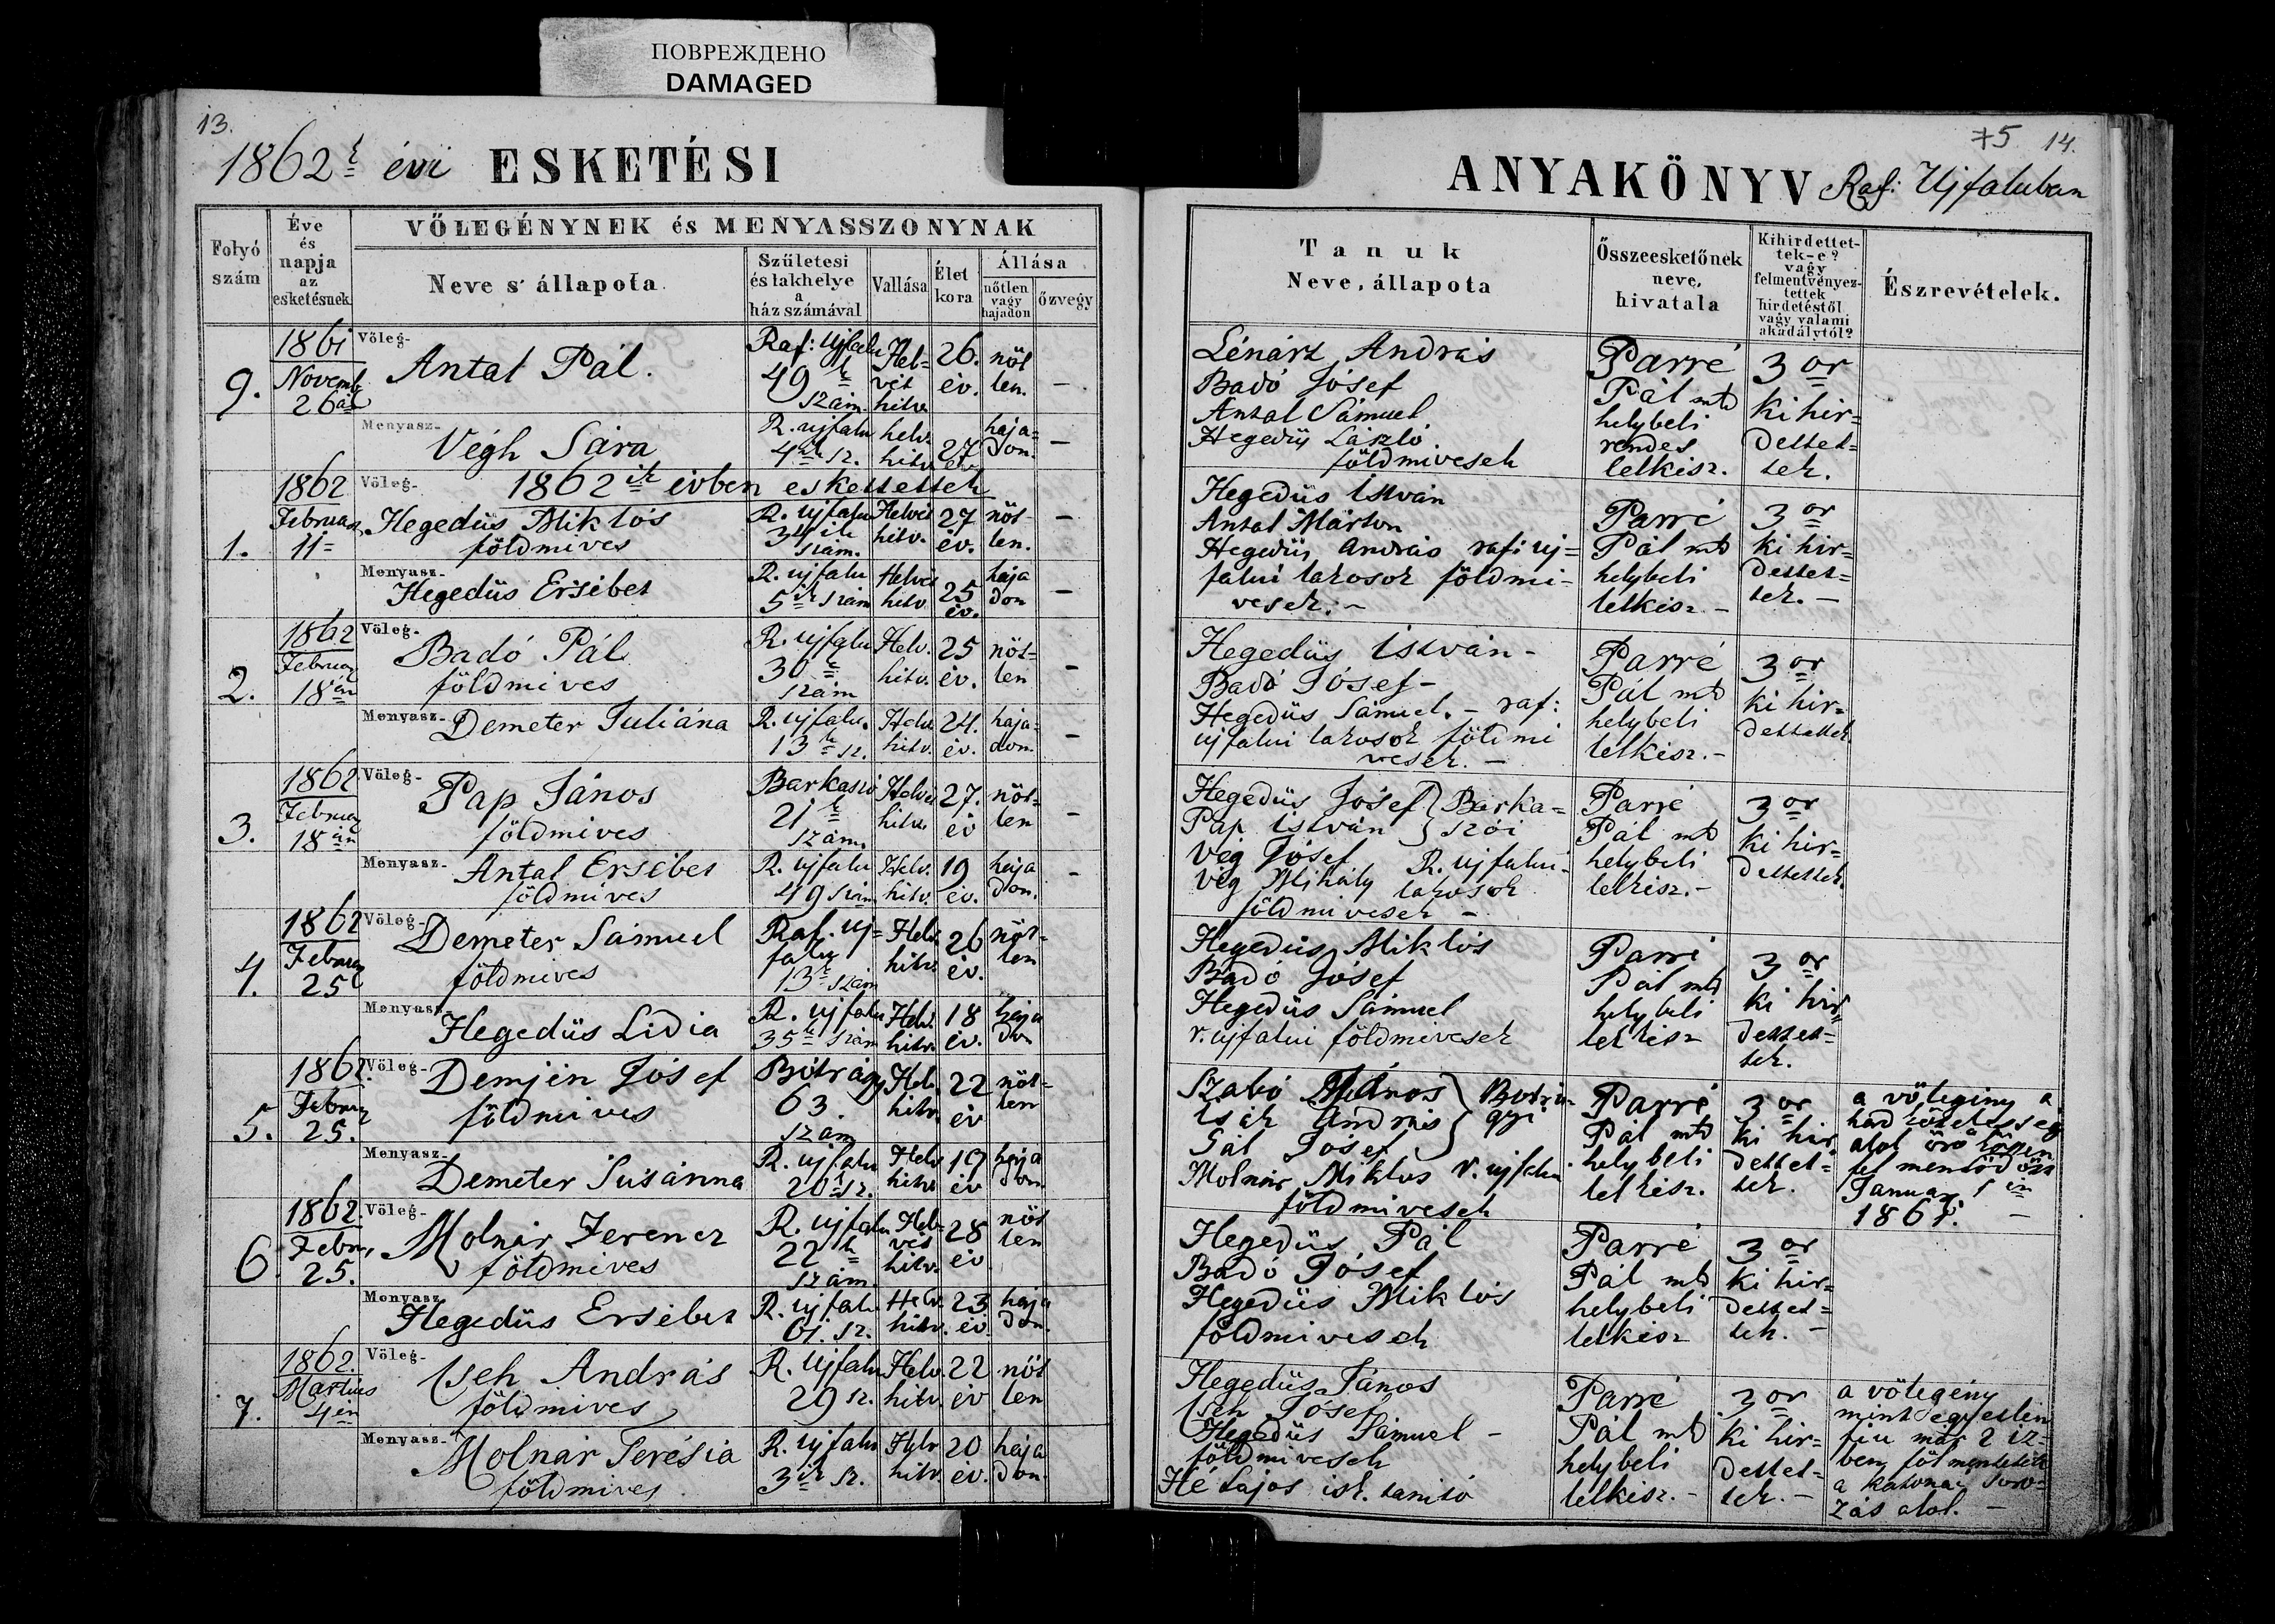 ПОВРЕЖДЕНО
DAMAGED
13.
1862k évi ESKETÉSI
Folyó szám
Éve és napja az esketésnek
VŐLEGÉNYNEK és MENYASSZONYNAK
Neve s' állapota
Születesi és lakhelye a ház számával
Vallása
Élet kora
Állása
nőtlen vagy hajadon
özvegy
9.
1861 Novemb 26án
Vőleg- Antal Pál.
Raf: Ujfalu 49k szám.
Helvét hitv.
26. év.
nőtlen.
–
Menyasz- Végh Sára
R. ujfalu 4ik sz.
helv. hitv.
27 év
hajadon.
–
1862ik évben eskettettek
1.
1862 Februar 11=
Vőleg- Hegedüs Miklós földmives
R. ujfalu 34ik szám.
Helvét hitv.
27 év.
nőtlen.
–
Menyasz- Hegedüs Ersébet
R. ujfalu 5ik szám
Helvét hitv.
25 év.
hajadon
–
2.
1862 Februar 18án
Vőleg- Badó Pál földmives
R. ujfalu 30k szám
Helv. hitv.
25 év.
nőtlen
–
Menyasz- Demeter Juliána
R. ujfalu. 13k sz.
Helv. hitv.
24. év.
hajadon.
–
3.
1862 Februar 18án
Vőleg- Pap János földmives
Barkaszó 21k szám.
Helvét hitv.
27. év
nőtlen
–
Menyasz- Antal Ersébet földmives
R. ujfalu 49 szám
Helv. hitv.
19 év.
hajadon.
–
4.
1862 Februar 25
Vőleg- Demeter Sámuel földmives
Raf. Ujfalu 13k szám
Helv. hitv.
26 év.
nőtlen
Menyasz. Hegedüs Lidia
R. ujfalu 35k szám
Helv. hitv.
18 év.
hajadon
5.
1862. Februar 25.
Vőleg- Demjén Jósef földmives
Bótrágy 63. szám
Helv. hitv.
22 év
nőtlen
Menyasz- Demeter Susánna
R. ujfalu 20k sz.
Helv hitv
19 év
hajadon
6
1862. Febru. 25.
Vőleg- Molnár Ferencz földmives
R. ujfalu 22k szám.
Helvét hitv.
28 év
nőtlen
Menyasz Hegedüs Ersébet
R. ujfalu 61. sz.
Helv. hitv.
23 év.
hajadon.
7.
1862. Martius 4én
Vőleg- Cseh András földmives
R. Ujfalu 29 sz.
Helv. hitv.
22 év
nőtlen
Menyasz- Molnár Terésia földmives
R. ujfalu 3ik sz.
Helv hitv.
20 év.
hajadon.
75 14.
ANYAKÖNYV Raf: Ujfaluban
Tanuk
Neve, állapota
Összeesketőnek neve, hivatala
Kihirdettettek-e? vagy felmentvényeztettek hirdetéstől vagy valami akadálytól?
Észrevételek.
Lénárt András
Badó Jósef
Antal Sámuel
Hegedüs László.
földmivesek
Parré Pál mk helybeli rendes lelkész.
3or kihirdettettek.
Hegedüs István
Antal Márton
Hegedüs András rafi ujfalui lakosok földmivesek. –
Parré Pál mk helybeli lelkész –
3or kihirdettettek. –
Hegedüs István –
Badó Jósef –
Hegedüs Sámuel. – raf:
ujfalui lakosok földmivesek. –
Parré Pál mk helybeli lelkész. –
3or kihirdettettek
Hegedüs Jósef } Barka=
Pap István } szói
Vég Jósef
Vég Mihály R. ujfalui lakosok
földmivesek –
Parré Pál mk helybeli lelkész. –
3or kihirdettettek.
Hegedüs Miklós
Badó Jósef
Hegedüs Sámuel
r. ujfalui földmivesek
Parré Pál mk helybeli lelkész
3or kihirdettettek.
Szabó János
Isák András
Gál Jósef
Molnár Miklós r. ujfalui
földmivesek
Parré Pál mk helybeli lelkész.
3or kihirdettettek.
a vőlegény a
had kötelesség
alol
Januar 1én
Hegedüs Pál
Badó Jósef
Hegedüs Miklós
földmivesek
Parré Pál mk helybeli lelkész
3or kihirdettettek. –
Hegedüs János
Cseh Jósef
Hegedüs Sámuel –
földmivesek
Hé Lajos isk. tanitó
Parré Pál mk helybeli lelkész. –
3or kihirdettettek. –
a vőlegény
mint egyetlen
fiu már 2 iz=
ben föl mentetett
a katonai soro=
zás alol. –